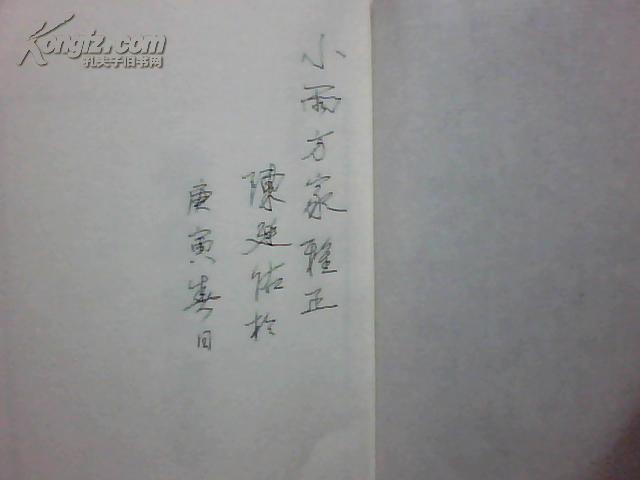 小雨方家雅正
陳廷佑於
庚寅春日
Kongfz.com
孔夫子旧书网